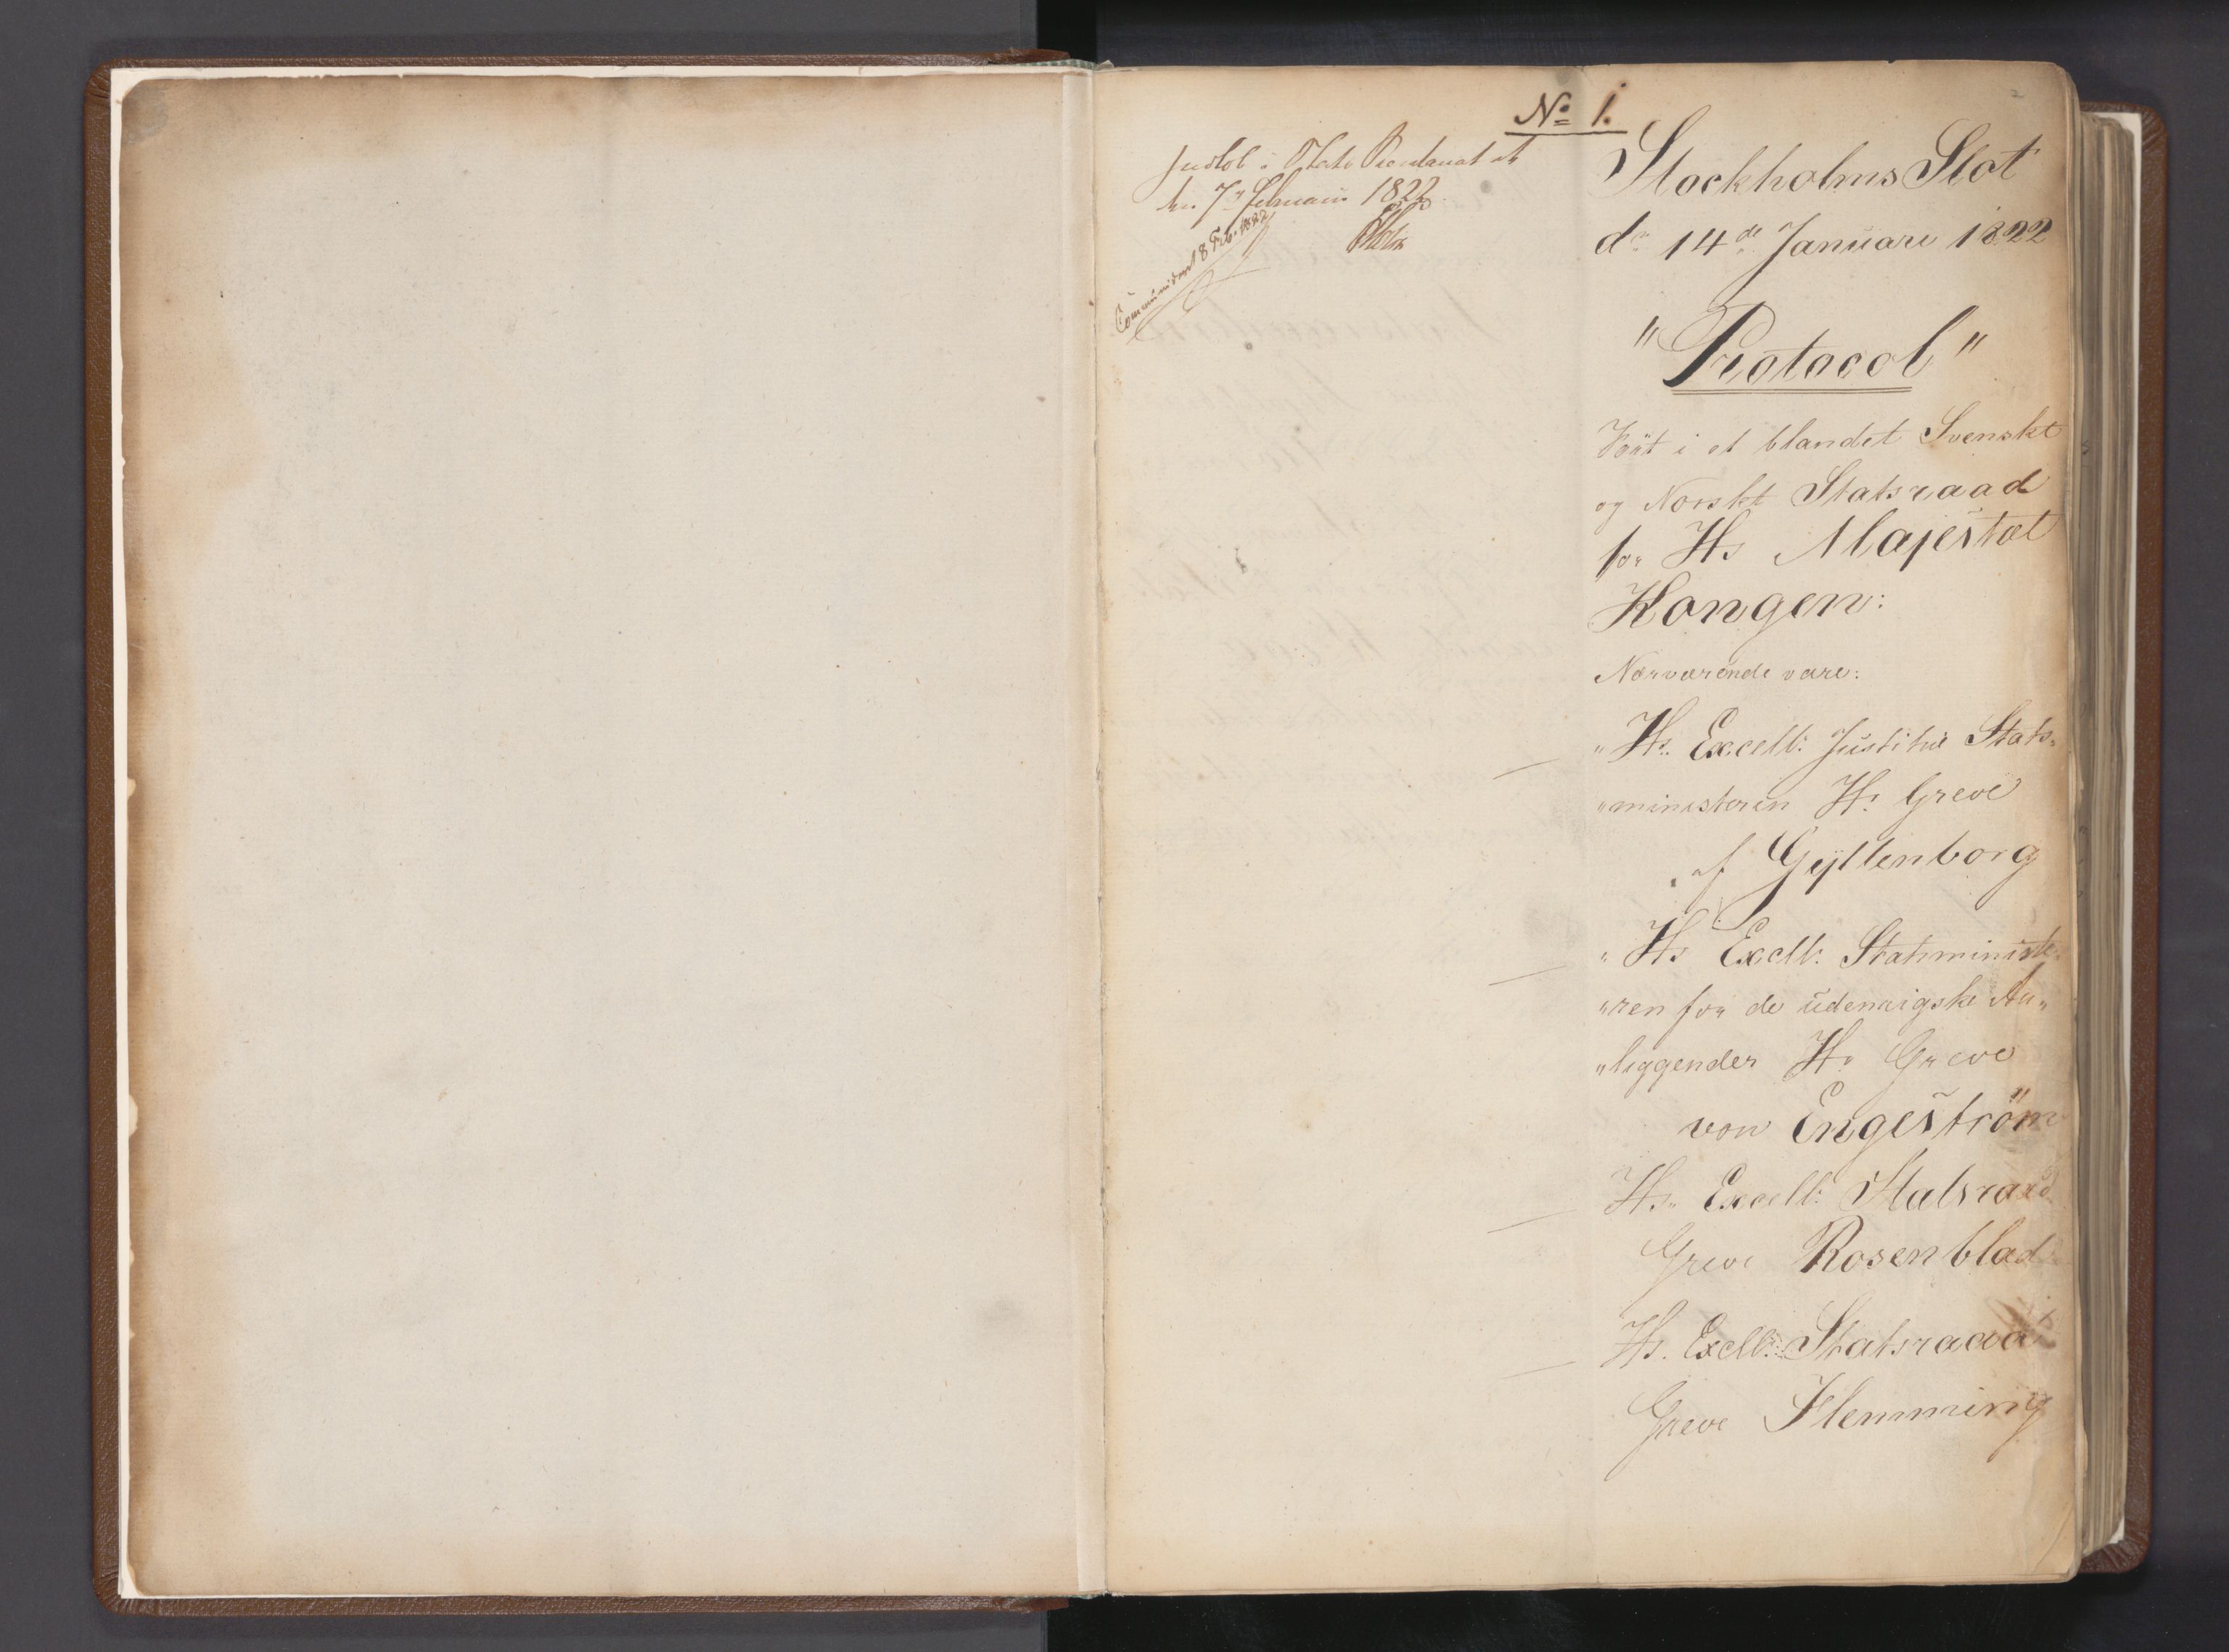 No 1.
i Stats
den 7de Februari 1822.
Communiceret 8 Feb: 1822
Stockholms Slot
dn 14de Januari 1822
"Protocol"
i et blandet Svenskt
og Norskt Statsraad
for Hs Majestæt
Kongen:
Nærværende vare:
"Hs. Excell: Justitiæ Stats=
"ministeren Hr Greve
af Gyllenborg
"Hs Excell: Statsministe=
"ren for de udenrigske An=
"liggender Hr Greve
von Engeström
Hs. Excell: Statsraad
Greve Rosenblad
Hs. Excll: Statsraad
Greve Flemming